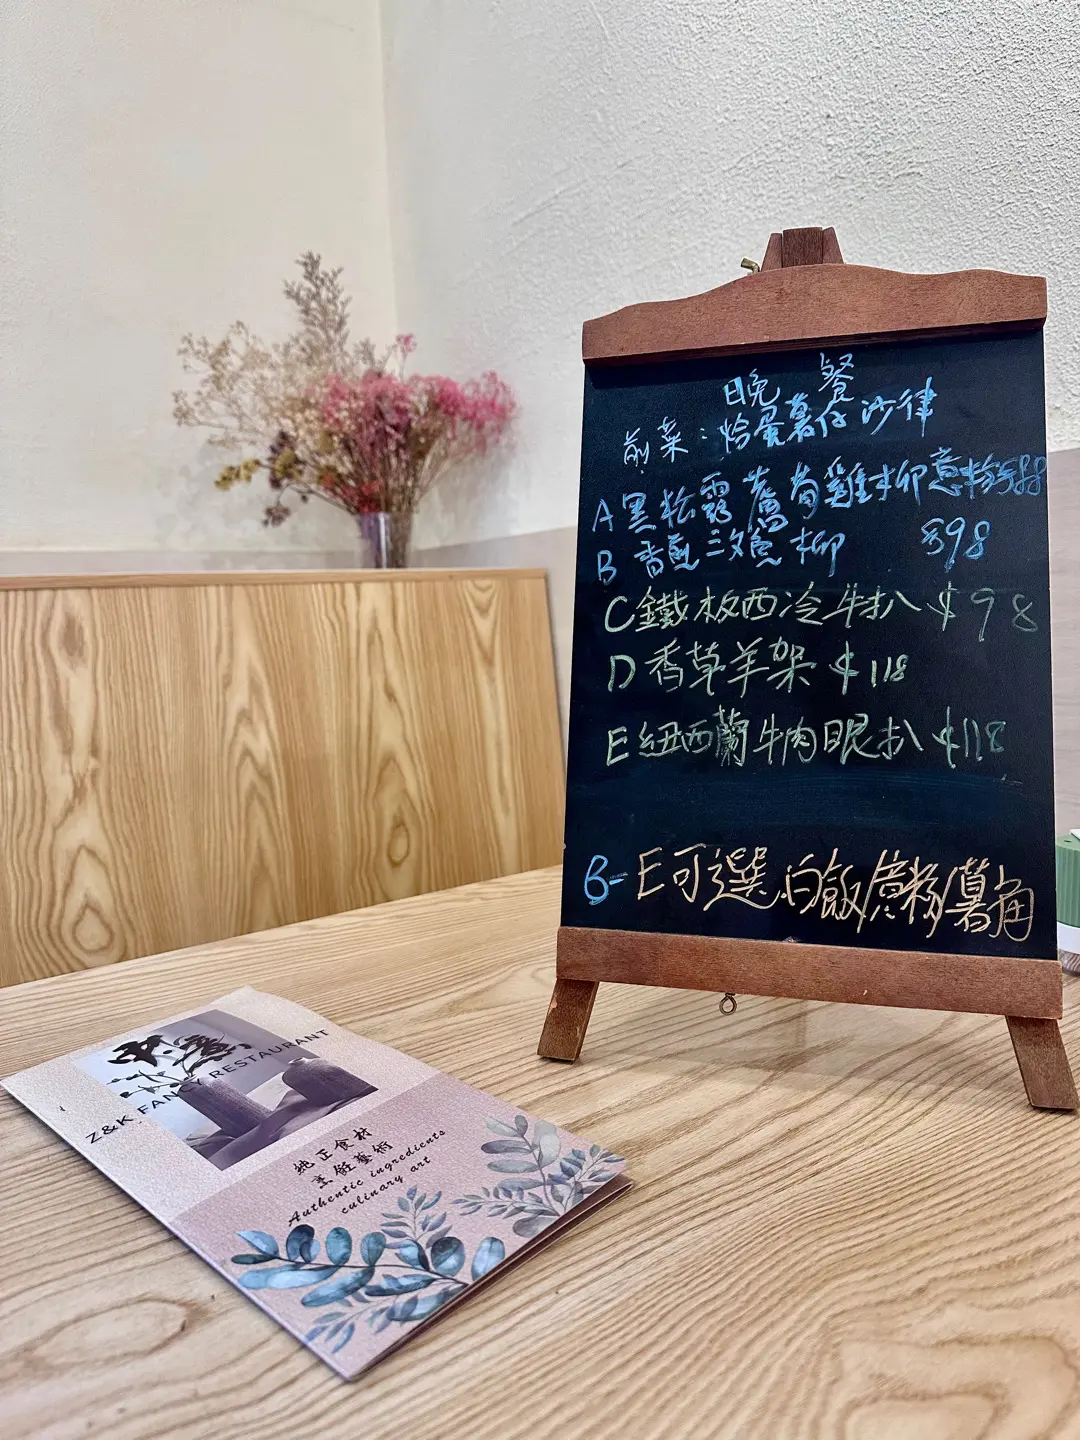 晚餐
前菜：烚蛋薯仔沙律
A 黑松露蘑菇雞柳意粉$88
B 香煎三文魚柳 $98
C 鐵板西冷牛扒 $98
D 香草羊架 $118
E 紐西蘭牛肉眼扒 $118
B-E可選白飯/意粉/薯角
Z&K FANCY RESTAURANT
純正食材
烹飪藝術
Authentic ingredients
culinary art